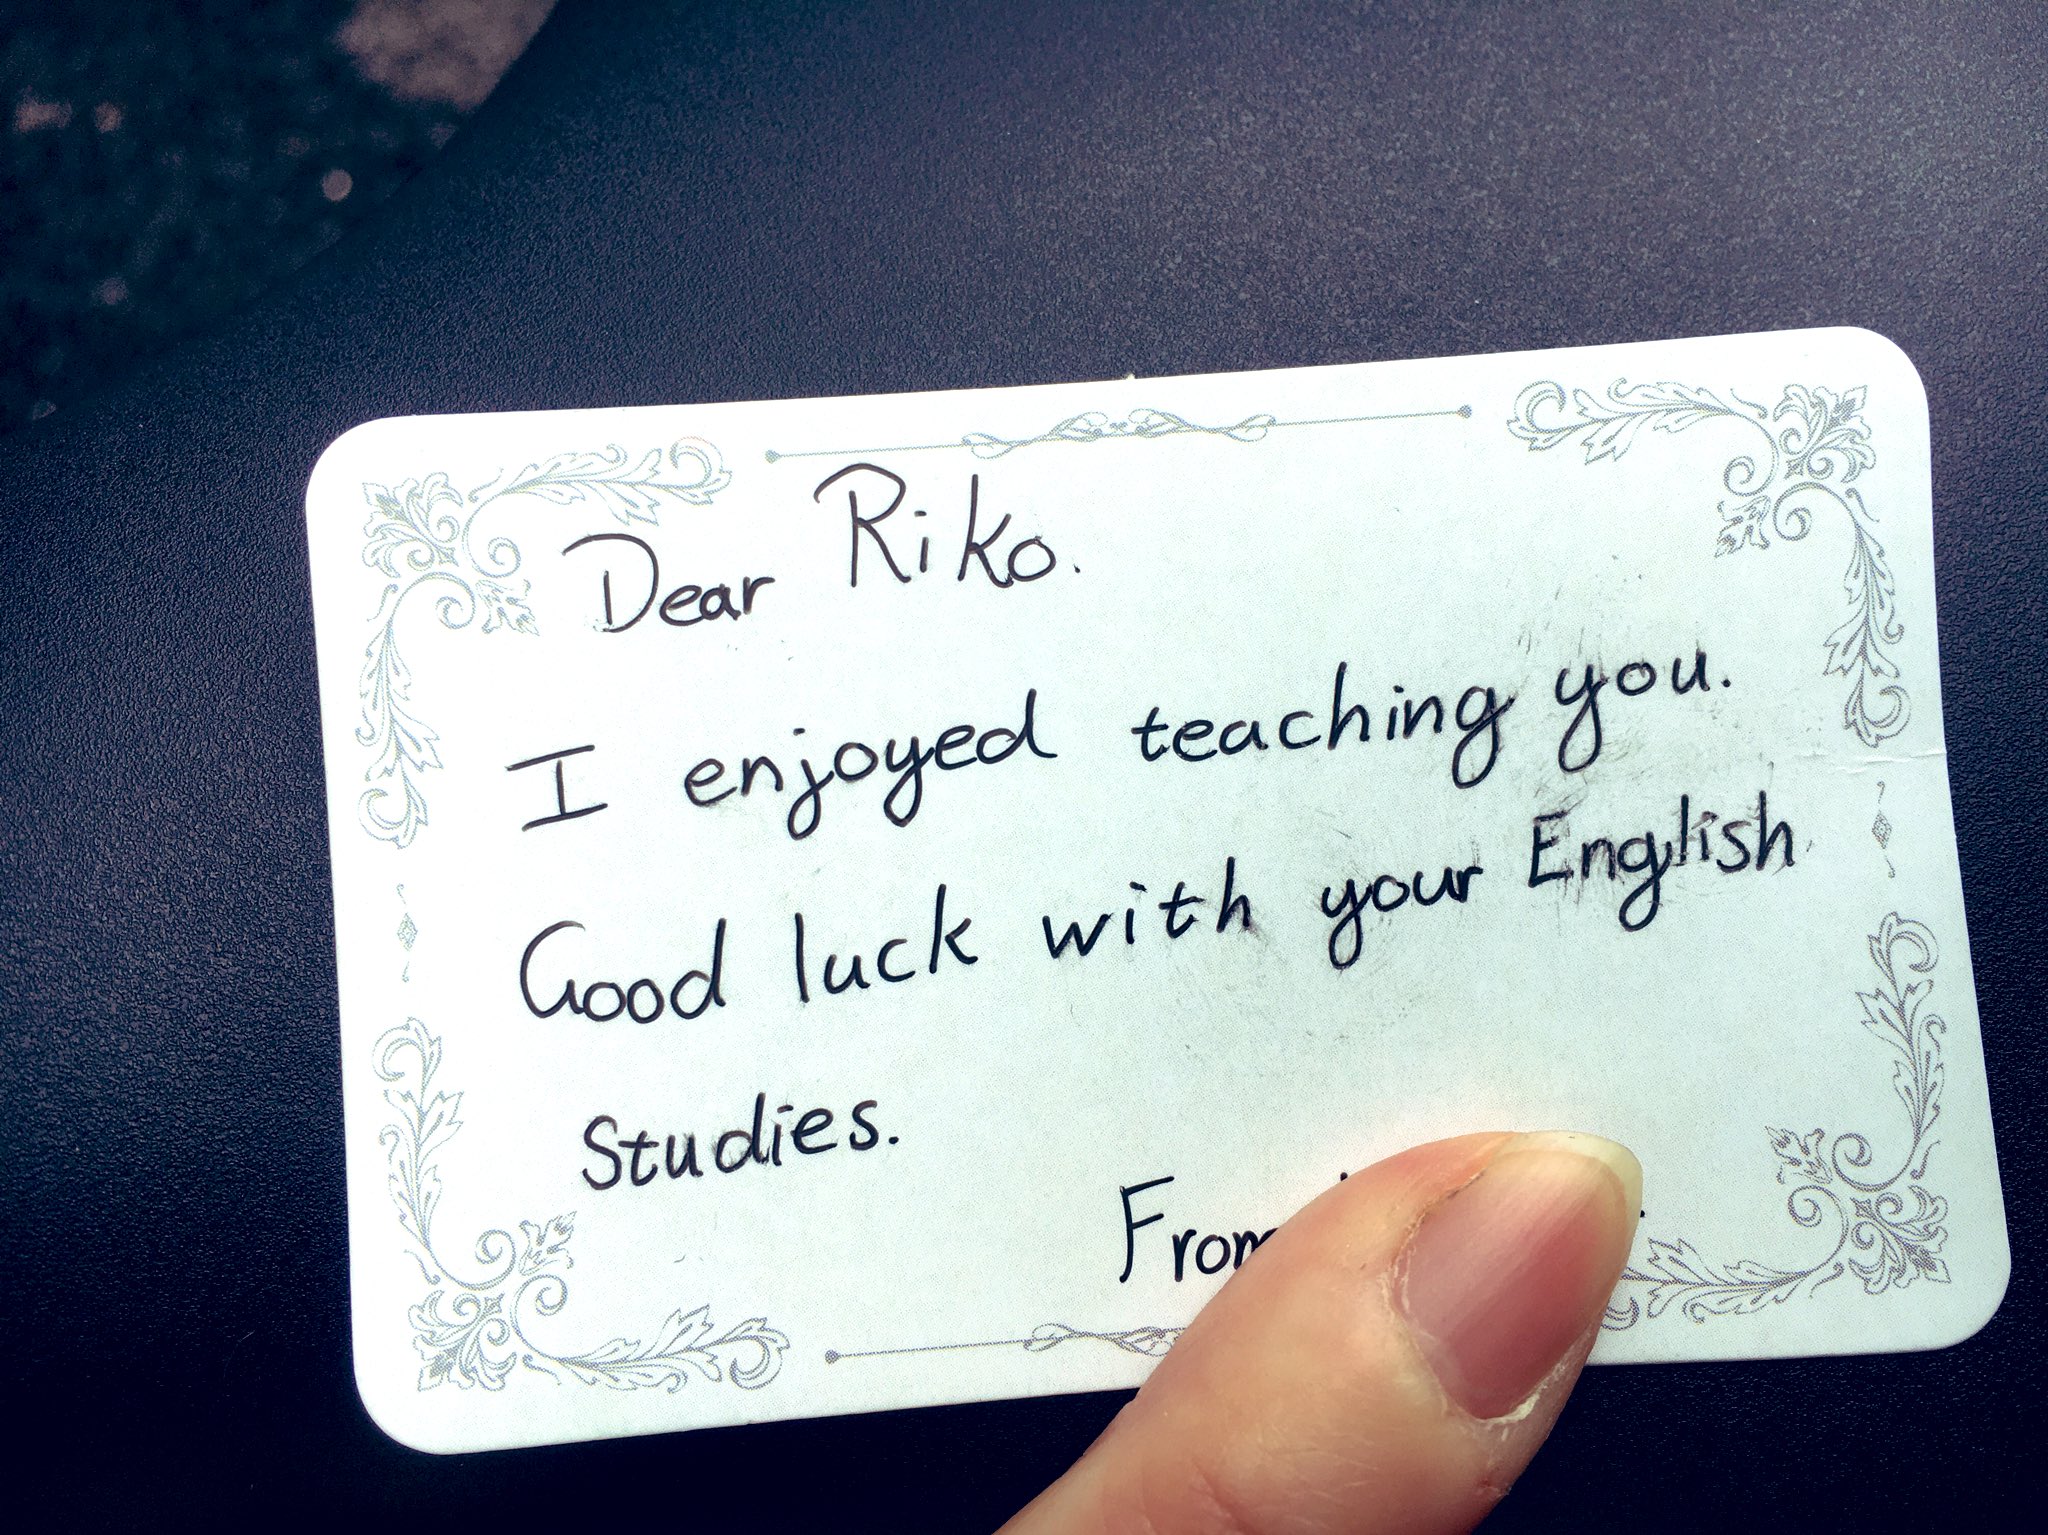 Dear Riko.
I enjoyed teaching you.
Good luck with your English
Studies.
From